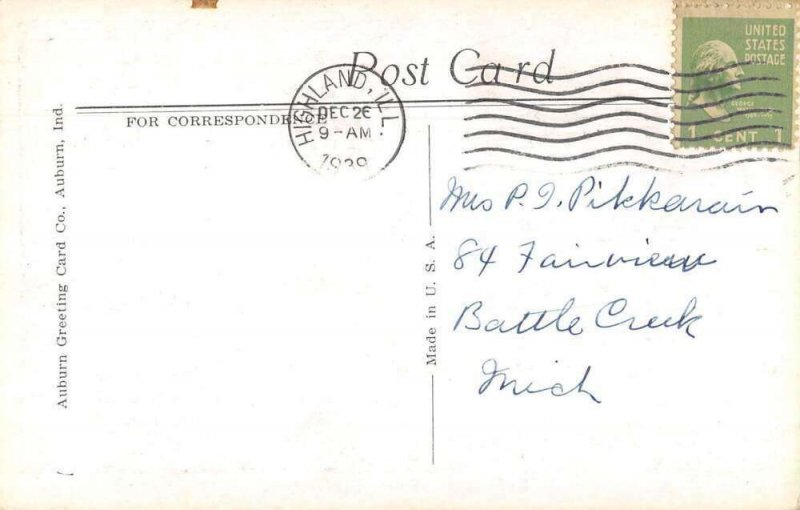 Post Card
FOR CORRESPONDENCE
HIGHLAND, ILL.
DEC 26
9-AM
1939
UNITED
STATES
POSTAGE
GEORGE
1 CENT 1
Mrs P. J. Pikkarain
84 Fairview
Battle Creek
Mich
Made in U. S. A.
Auburn Greeting Card Co., Auburn, Ind.